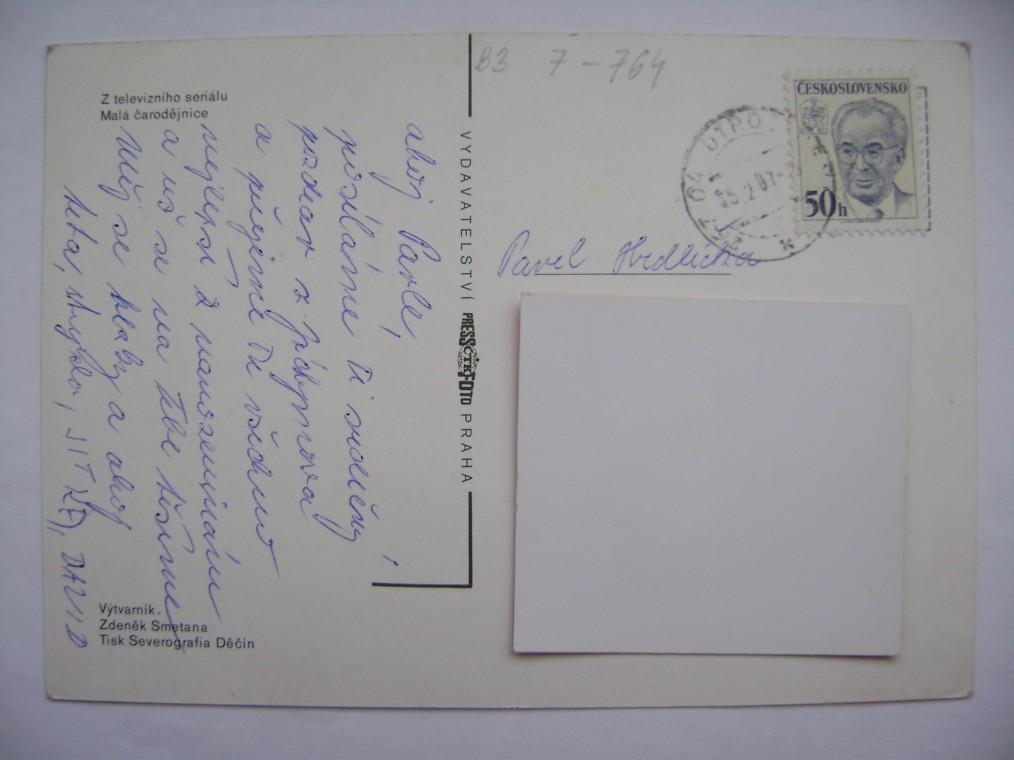 Z televizního seriálu
Malá čarodějnice
ahoj Pavle,
posíláme Ti srdečný
pozdrav z
a přejeme Ti všechno
nejlepší k narozeninám
a už se na tebe těšíme
měj se hezky a ahoj
teta, strýda, JITKA, DAVID
Výtvarník
Zdeněk Smetana
Tisk Severografia Děčín
VYDAVATELSTVÍ PRESSFOTO PRAHA
ČTK
7-764
ČESKOSLOVENSKO
50h
Pavel Hrdlička